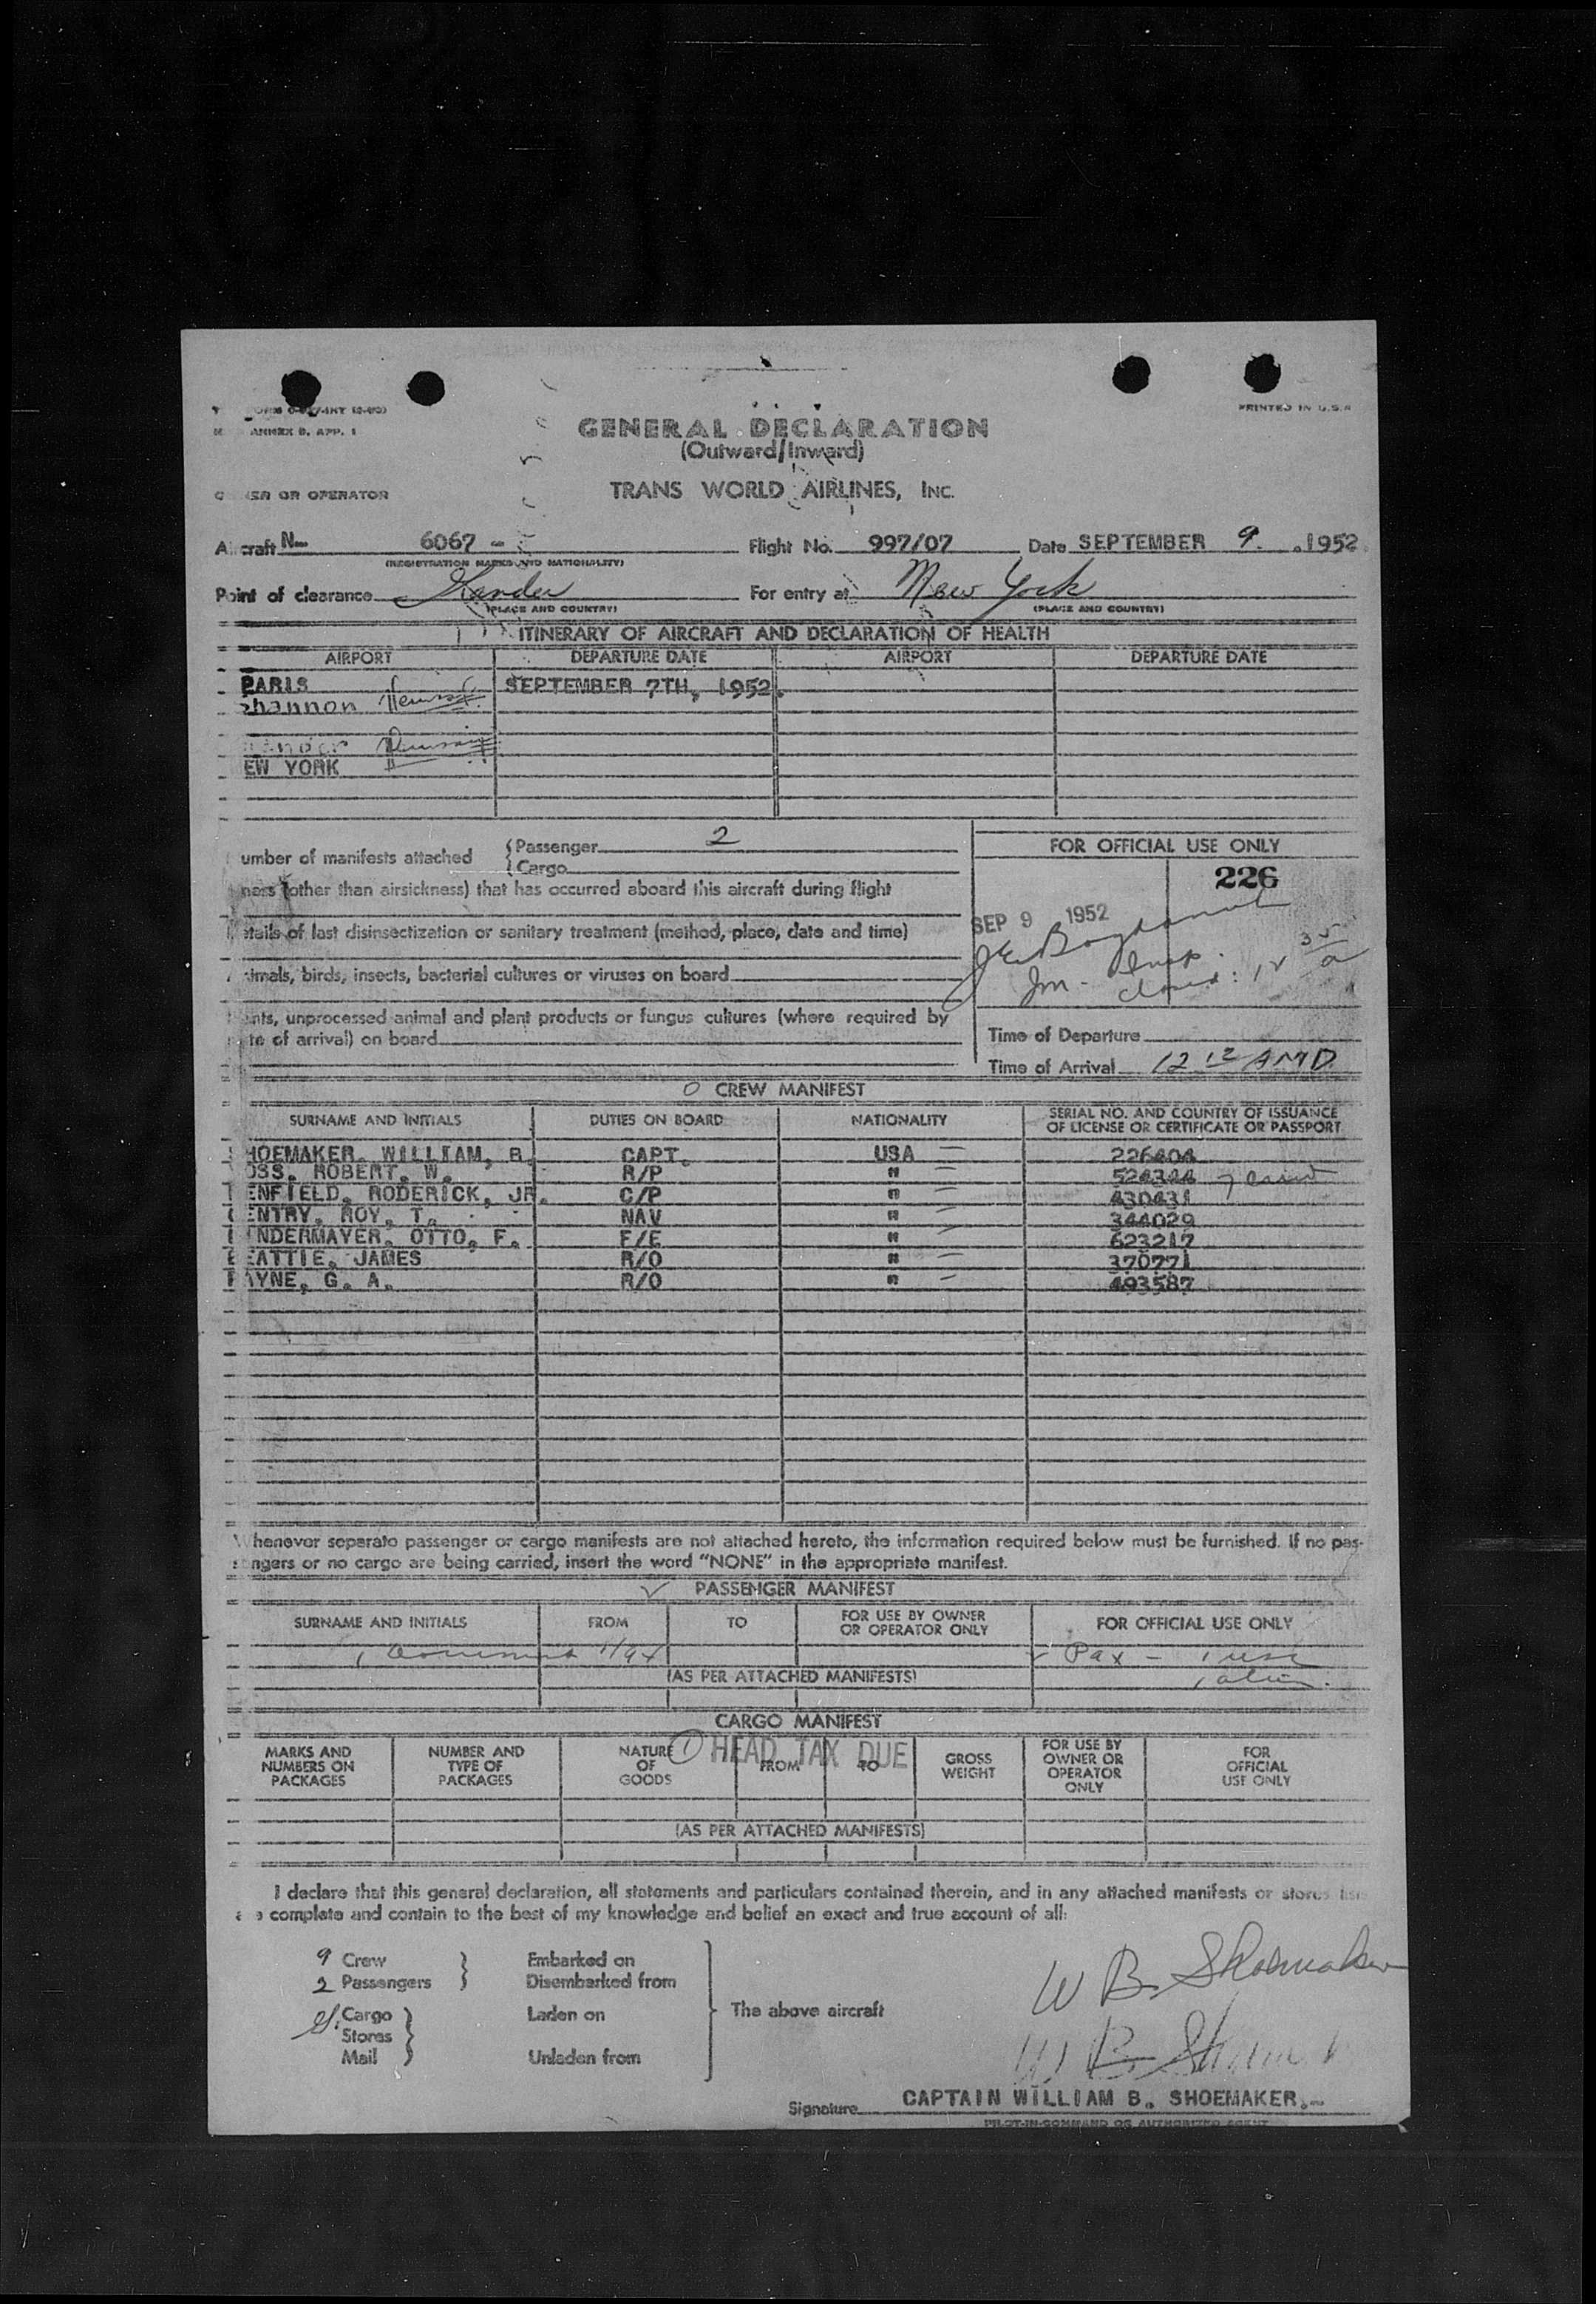 ANNEX B, APP. 1
PRINTED IN U.S.A
GENERAL DECLARATION
(Outward/Inward)
OR OPERATOR
TRANS WORLD AIRLINES, INC.
Aircraft N- 6067 - Flight No. 997/07 Date SEPTEMBER 9. .1952
(REGISTRATION MARKS AND NATIONALITY)
Point of clearance Gander For entry at New York
(PLACE AND COUNTRY) (PLACE AND COUNTRY)
ITINERARY OF AIRCRAFT AND DECLARATION OF HEALTH
AIRPORT DEPARTURE DATE AIRPORT DEPARTURE DATE
PARIS SEPTEMBER 7TH, 1952.
Shannon
ander
EW YORK
umber of manifests attached {Passenger 2
{Cargo
ness (other than airsickness) that has occurred aboard this aircraft during flight
etails of last disinsectization or sanitary treatment (method, place, date and time)
imals, birds, insects, bacterial cultures or viruses on board
ants, unprocessed animal and plant products or fungus cultures (where required by
te of arrival) on board
FOR OFFICIAL USE ONLY
226
SEP 9 1952
Time of Departure
Time of Arrival 12 12 AM D
CREW MANIFEST
SURNAME AND INITIALS DUTIES ON BOARD NATIONALITY SERIAL NO. AND COUNTRY OF ISSUANCE
OF LICENSE OR CERTIFICATE OR PASSPORT
HOEMAKER, WILLIAM, B. CAPT. USA 226404
OSS, ROBERT, W. R/P " 524344
ENFIELD, RODERICK, JR. C/P " 430431
ENTRY, ROY, T. NAV " 344029
NDERMAYER, OTTO, F. F/E " 623217
EATTIE, JAMES R/O " 370771
AYNE, G. A. R/O " 493587
Whenever separate passenger or cargo manifests are not attached hereto, the information required below must be furnished. If no pas-
ngers or no cargo are being carried, insert the word "NONE" in the appropriate manifest.
PASSENGER MANIFEST
SURNAME AND INITIALS FROM TO FOR USE BY OWNER
OR OPERATOR ONLY FOR OFFICIAL USE ONLY
Pax -
(AS PER ATTACHED MANIFESTS)
CARGO MANIFEST
1 HEAD TAX DUE
MARKS AND
NUMBERS ON
PACKAGES
NUMBER AND
TYPE OF
PACKAGES
NATURE
OF
GOODS
FROM
TO
GROSS
WEIGHT
FOR USE BY
OWNER OR
OPERATOR
ONLY
FOR
OFFICIAL
USE ONLY
(AS PER ATTACHED MANIFESTS)
I declare that this general declaration, all statements and particulars contained therein, and in any attached manifests or stores
complete and contain to the best of my knowledge and belief an exact and true account of all:
9 Crew Embarked on
2 Passengers Disembarked from
Cargo Laden on
Stores
Mail Unladen from
The above aircraft
W B Shoemaker
W B Shoemaker
Signature CAPTAIN WILLIAM B. SHOEMAKER.-
PILOT-IN-COMMAND OR AUTHORIZED AGENT